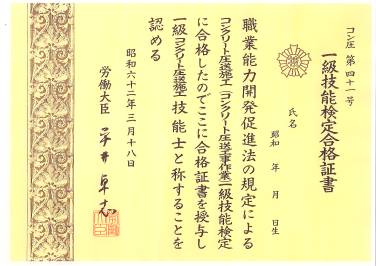 コン圧 第四十一号
一級技能検定合格証書
氏名
昭和 年 月 日生
職業能力開発促進法の規定による
コンクリート圧送施工（コンクリート圧送工事作業）一級技能検定
に合格したのでここに合格証書を授与し
一級コンクリート圧送施工技能士と称することを
認める
昭和六十二年三月十八日
労働大臣 平井卓志